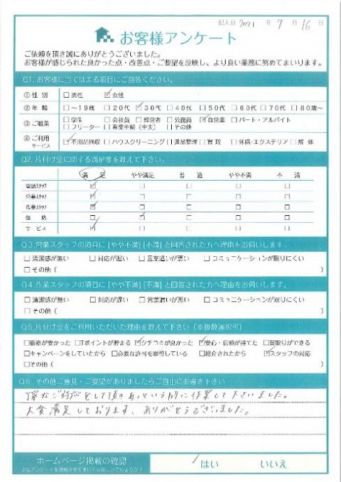 記入日 2021年 7月 16日
お客様アンケート
ご依頼を頂き誠にありがとうございました。
お客様が感じられた良かった点・改善点・ご要望を反映し、より良い業務に努めてまいります。
Q1. お客様に当てはまる項目にご回答ください。
①性 別 □男性 ☑女性
②年 齢 □~19歳 □20代 ☑30代 □40代 □50代 □60代 □70代 □80歳~
③ご職業 □学生 □会社員 □経営者 □公務員 ☑自営業 □パート・アルバイト
□フリーター □専業主婦(主夫) □その他
④ご利用サービス ☑不用品回収 □ハウスクリーニング □遺品整理 □買取 □外構・エクステリア □解体
Q2. 片付け堂に対する満足度を教えて下さい。
満 足 やや満足 普 通 やや不満 不 満
電話スタッフ ☑ □ □ □ □
営業スタッフ ☑ □ □ □ □
作業スタッフ ☑ □ □ □ □
価 格 □ ☑ □ □ □
サービス ☑ □ □ □ □
Q3. 営業スタッフの項目に [やや不満] [不満] と回答された方へ理由をお伺いします。
□清潔感が無い □対応が遅い □言葉遣いが悪い □コミュニケーションが取りにくい
□その他 (
Q4. 作業スタッフの項目に [やや不満] [不満] と回答された方へ理由をお伺いします。
□清潔感が無い □対応が遅い □言葉遣いが悪い □コミュニケーションが取りにくい
□その他 (
Q5. 片付け堂をご利用いただいた理由を教えて下さい (※複数選択可)
□価格が安かった □Tポイントが貯まる ☑クチコミが良かった ☑安心・信頼が持てた □買取りができる
□キャンペーンをしていたから □必要な許可を取得している □紹介されたから ☑スタッフの対応
□その他 (
Q6. その他ご意見・ご要望がありましたらご自由にお書き下さい
丁寧なご対応をして頂きあっという間に作業して下さいました。
大変満足しております。ありがとうございました。
ホームページ掲載の確認
はい いいえ